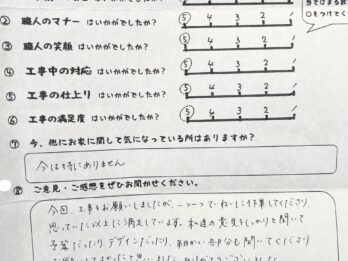 当てはまる数
○をつけてく
② 職人のマナー はいかがでしたか? 5 4 3 2 1
③ 職人の笑顔 はいかがでしたか? 5 4 3 2 1
④ 工事中の対応 はいかがでしたか? 5 4 3 2 1
⑤ 工事の仕上り はいかがでしたか? 5 4 3 2 1
⑥ 工事の満足度 はいかがでしたか? 5 4 3 2 1
⑦ 今、他にお家に関して気になっている所はありますか?
今は特にありません
⑧ ご意見・ご感想をぜひお聞かせください。
今回、工事をお願いしましたが、一つ一つていねいに作業してくださり、
思っていた以上に満足しています。私達の意見をしっかりと聞いて
予算だったり、デザインだったり、細かい部分なも聞いてくださり